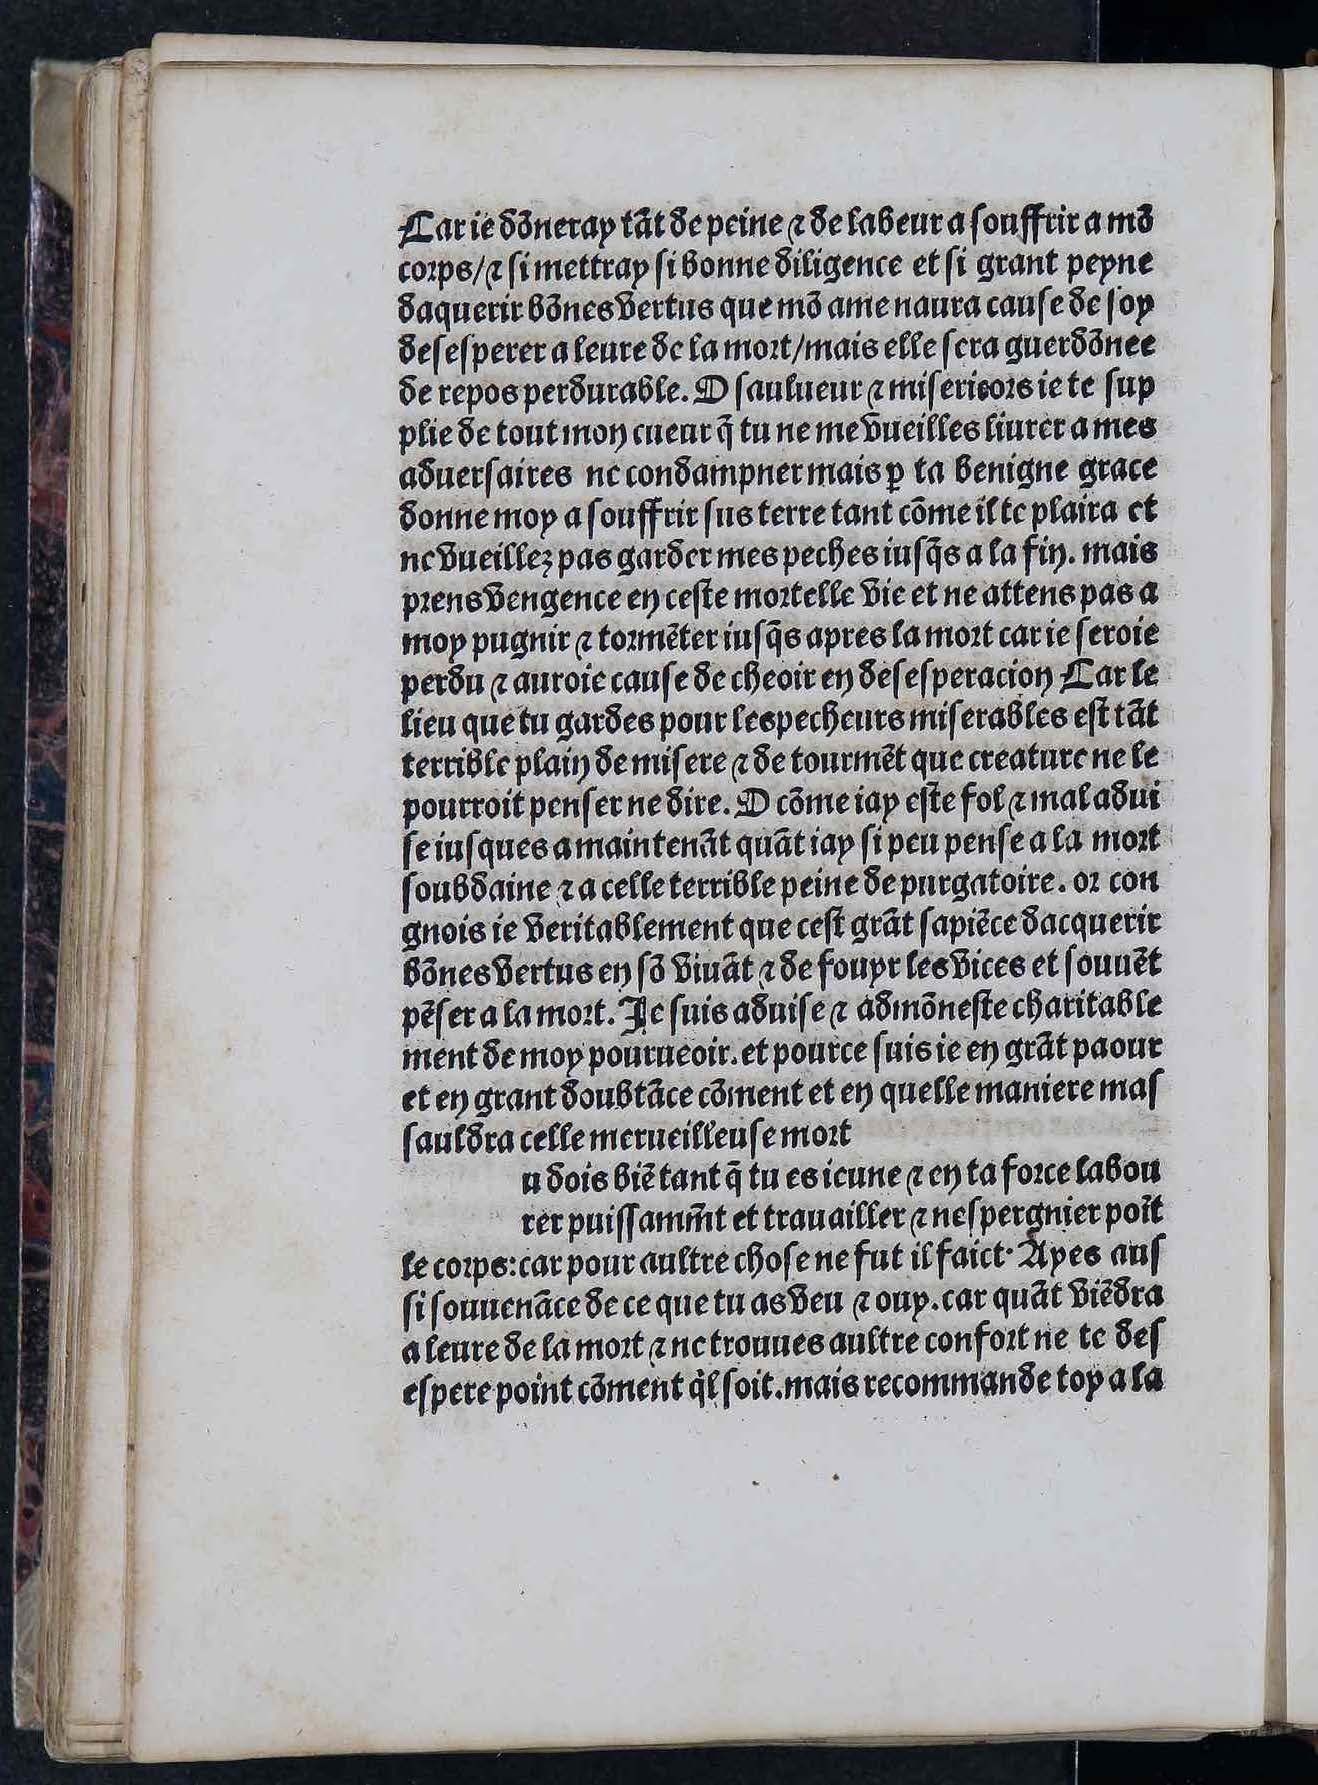 Car ie dōneray tāt de peine ⁊ de labeur a souffrir a mō
corps/⁊ si mettray si bonne diligence et si grant peyne
daquerir bōnes vertus que mō ame naura cause de soy
desesperer a leure de la mort/mais elle sera guerdōnee
de repos perdurable. O saulueur ⁊ misericors ie te sup
plie de tout mon cueur q̄ tu ne me vueilles liurer a mes
aduersaires ne condampner mais ꝑ ta benigne grace
donne moy a souffrir sus terre tant cōme il te plaira et
ne vueillez pas garder mes peches iusq̄s a la fin. mais
prens vengence en ceste mortelle vie et ne attens pas a
moy pugnir ⁊ tormēter iusq̄s apres la mort car ie seroie
perdu ⁊ auroie cause de cheoir en desesperacion Car le
lieu que tu gardes pour les pecheurs miserables est tāt
terrible plain de misere ⁊ de tourmēt que creature ne le
pourroit penser ne dire. O cōme iay este fol ⁊ mal adui
se iusques a maintenāt quāt iay si peu pense a la mort
soubdaine ⁊ a celle terrible peine de purgatoire. or con
gnois ie veritablement que cest grāt sapiēce dacquerir
bōnes vertus en sō viuāt ⁊ de fouyr les vices et souuēt
pēser a la mort. Je suis aduise ⁊ admōneste charitable
ment de moy pourueoir. et pource suis ie en grāt paour
et en grant doubtāce cōment et en quelle maniere mas
sauldra celle merueilleuse mort
u dois biē tant q̄ tu es ieune ⁊ en ta force labou
rer puissamm̄t et trauailler ⁊ nespergnier poīt
le corps: car pour aultre chose ne fut il faict· Ayes aus
si souuenāce de ce que tu as veu ⁊ ouy. car quāt viēdra
a leure de la mort ⁊ ne trouues aultre confort ne te des
espere point cōment q̄l soit. mais recommande toy a la